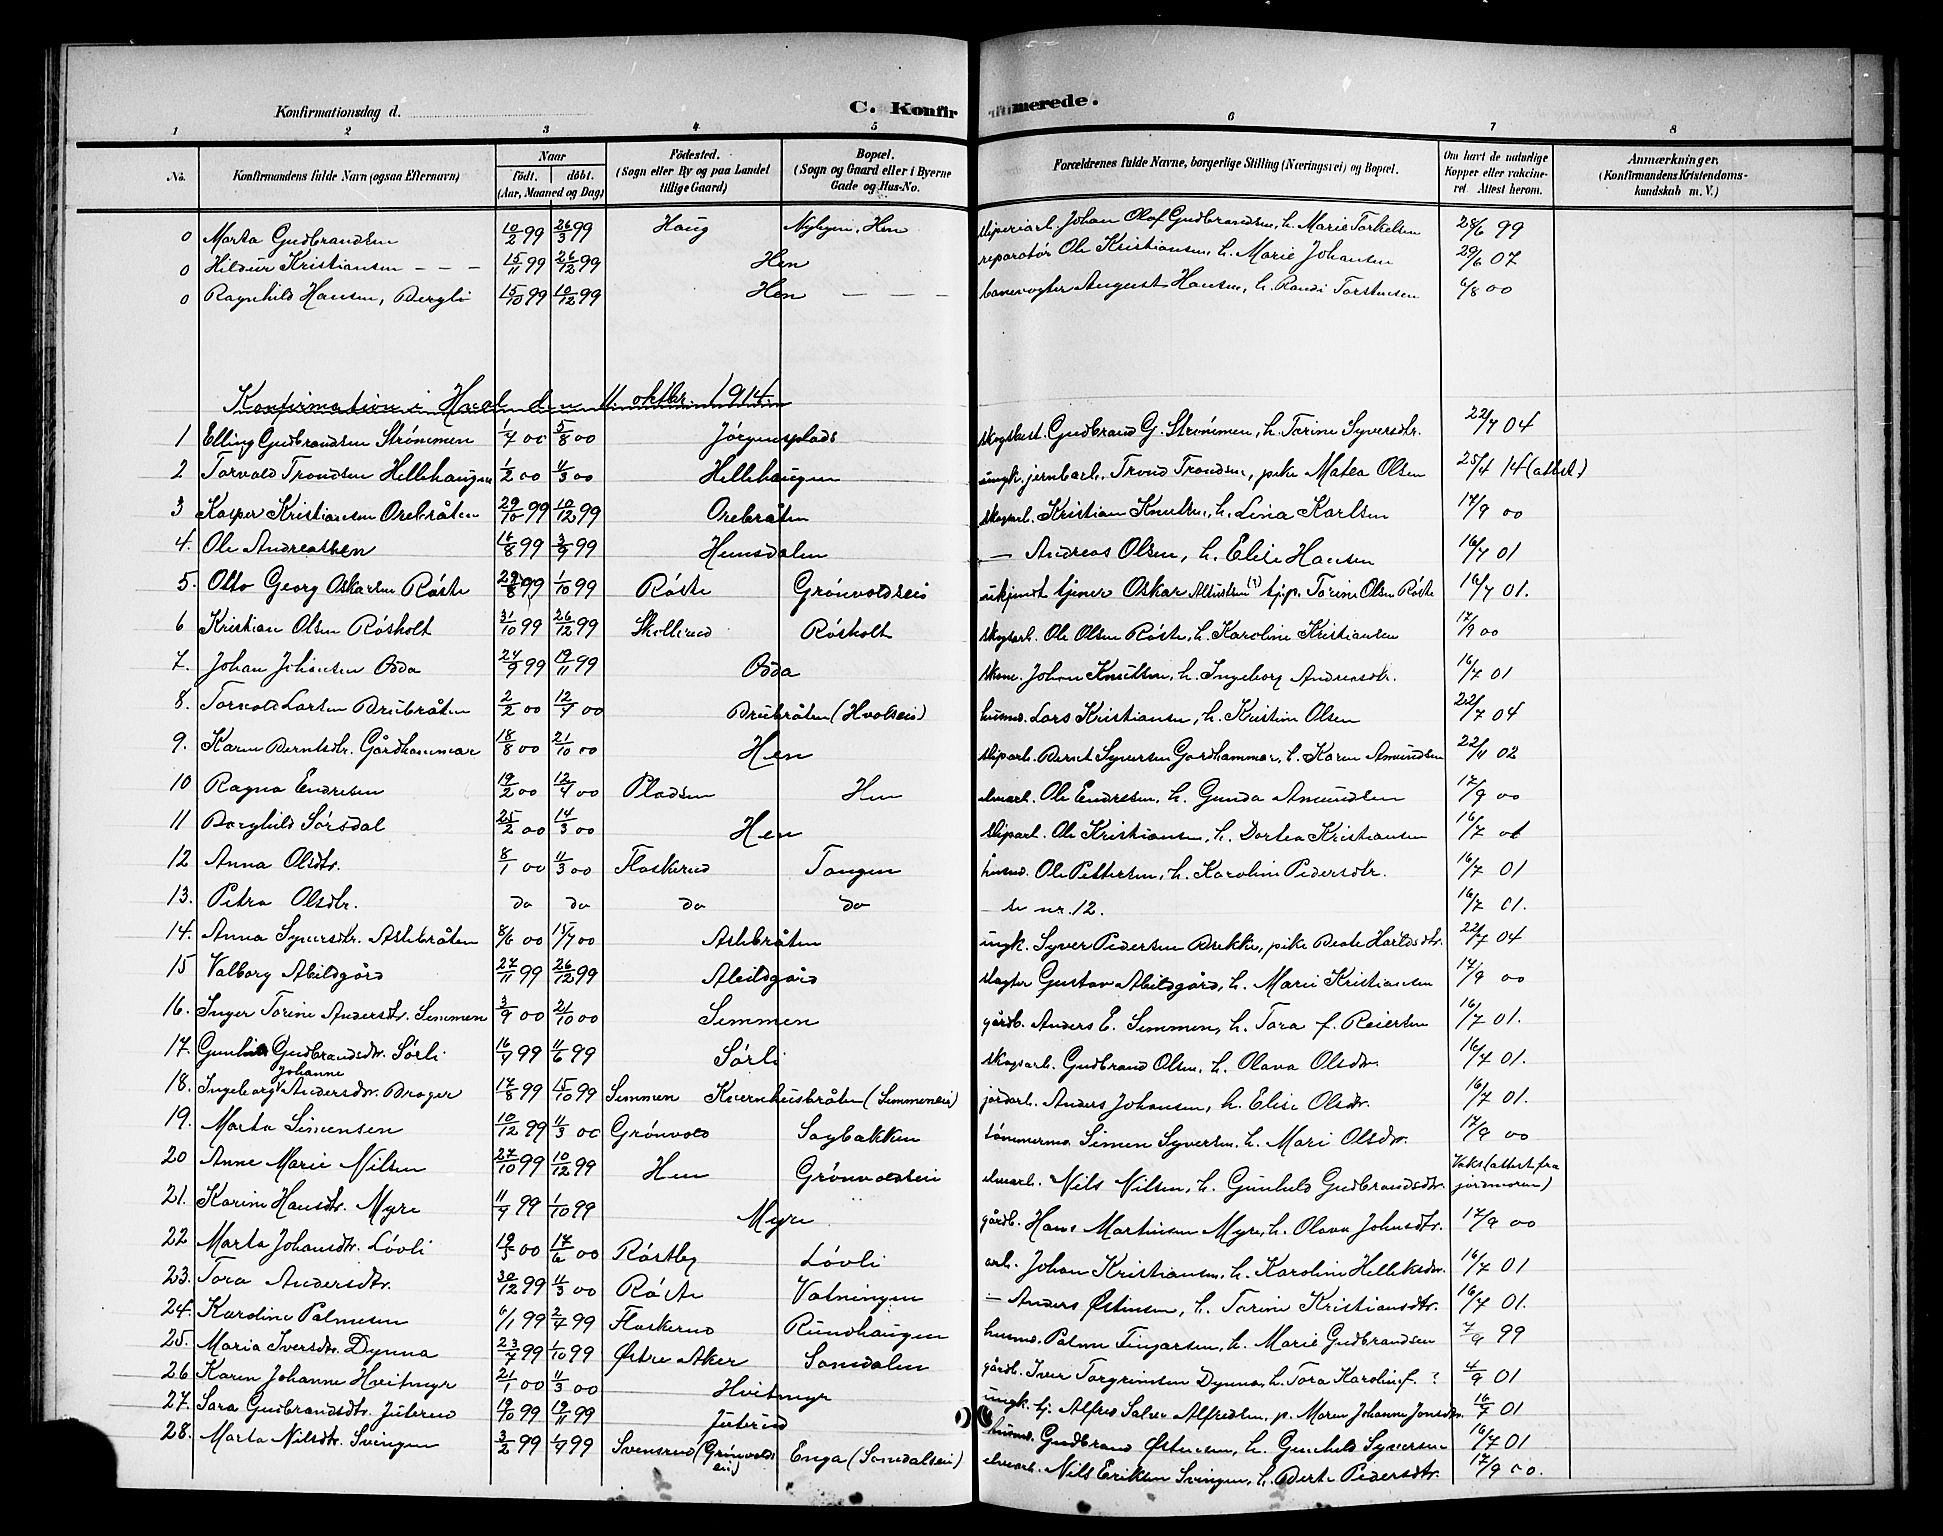 Konfirmationsdag d.
C. Konfirmerede.
1 2 3 4 5 6 7 8
No. Konfirmandens fulde Navn (ogsaa Efternavn) Naar født. døbt. (Aar, Maaned og Dag) Fødested. (Sogn eller By og paa Landet tillige Gaard) Bopæl. (Sogn og Gaard eller i Byerne Gade og Hus-No. Forældrenes fulde Navne, borgerlige Stilling (Næringsvei) og Bopæl. Om havt de naturlige Kopper eller vakcineret. Attest herom. Anmærkninger. (Konfirmandens Kristendomskundskab m. V.)
0 Marta Gudbrandsen 10/2 99 26/3 99 Haug Hen Johan Olaf Gudbrandsen, h. Marie Torkelsen 28/6 99
0 Hildur Kristiansen 15/11 99 26/12 99 Hen reparatør Ole Kristiansen, h. Marie Johansen 29/6 07
0 Ragnhild Hansen, Bergli 15/10 99 10/12 99 Hen banevogter August Hansen, h. Randi Torstensen 6/8 00
Konfirmation i Hval den 11 oktbr. 1914
1 Elling Gudbrandsen Strømmen 1/7 00 5/8 00 Jörgensplads skogsbest. Gudbrand G. Strømmen, h. Torine Syversdtr. 22/7 04
2 Torvald Trondsen Hellehaugen 1/2 00 11/3 00 Hellehaugen ungk. jernbarb. Trond Trondsen, pike Matea Olsen 25/4 14 (attest)
3 Kasper Kristiansen Orebråten 29/10 99 10/12 99 Orebråten skogsarb. Kristian Knutsen, h. Lina Karlsen 17/9 00
4. Ole Andreassen 16/8 99 3/9 99 Hemsdalen — Andreas Olsen, h. Elise Hansen 16/7 01
5. Otto Georg Oskarsen Röste 29/8 99 1/10 99 Röste Grönvoldseie ukjendt tjener Oskar (?) tjp. Torine Olsen Röste 16/7 01.
6 Kristian Olsen Rösholt 31/10 99 26/12 99 Skollerud Rösholt skogsarb. Ole Olsen Röste, h. Karoline Kristiansen 17/9 00
7. Johan Johansen Odda 24/9 99 19/11 99 Odda skom. Johan Knutsen, h. Ingeborg Andreasdtr. 16/7 01
8. Torvald Larsen Brubråten 2/2 00 12/4 00 Brubråten (Hvalseie) husmd. Lars Kristiansen, h. Kristine Olsen 22/7 04
9. Karen Berntsdtr. Gårdhammar 18/8 00 21/10 00 Hen sliparb. Bernt Syversen Gardhammar, h. Karen Amundsen 22/11 02
10 Ragna Endresen 19/2 00 12/4 00 Pladsen Hen elvearb. Ole Endresen, h. Gunda Amundsen 17/9 00
11 Borghild Sörsdal 25/2 00 14/3 00 Hen sliparb. Ole Kristiansen, h. Dortea Kristiansen 16/7 01
12 Anna Olsdtr. 8/1 00 11/3 00 Flaskerud Tangen husmd. Ole Pettersen, h. Karoline Pedersdtr. 16/7 01
13. Petra Olsdtr. do do do do — se nr. 12. 16/7 01.
14. Anna Syversdtr. Askebråten 8/6 00 15/7 00 Askebråten ungk. Syver Pedersen Bække, pike Beate Haraldsdtr. 22/7 04
15 Valborg Abildgård 27/11 99 26/12 99 Abildgård slagter Gustav Abildgård, h. Marie Kristiansen 17/9 00
16. Inger Torine Andersdtr. Semmen 3/9 00 21/10 00 Semmen gårdb. Anders E. Semmen, h. Tora f. Reiersen 16/7 01.
17. Gunhild Gudbrandsdtr. Sörli 16/4 99 11/6 99 Sörli skogsarb. Gudbrand Olsen, h. Olava Olsdtr. 16/7 01.
18. Ingeborg Johanne Andersdtr. Brager 17/8 99 15/10 99 Semmen Kvernhusbråten (Semmeneie) jordarb. Anders Johansen, h. Elise Olsdtr. 16/7 01.
19. Marta Simensen 10/12 99 11/3 00 Grönvold Sagbakken tömmermd. Simen Syversen, h. Mari Olsdtr. 17/9 00
20 Anne Marie Nilsen 27/10 99 10/12 99 Hen Grönvoldseie elvearb. Nils Nilsen, h. Gunhild Gudbrandsdtr. Vaks (attest fra jordmoren)
21. Karine Hansdtr. Myre 11/9 99 1/10 99 Myre gårdb. Hans Martinsen Myre, h. Olava Johnsdtr. 17/9 00
22 Marta Johansdtr. Lövli 19/5 00 17/6 00 Röstby Lövli arb. Johan Kristiansen, h. Karoline Helleksdtr. 16/7 01
23. Tora Andersdtr. 30/12 99 11/3 00 Röste Vatningen — Anders Østensen, h. Torine Kristiansdtr. 16/7 01.
24. Karoline Palmesen 6/1 99 2/4 99 Flaskerud Rundhaugen husmd. Palme Fingarsen, h. Marie Gudbrandsen 7/9 99
25. Maria Iversdtr. Dynna 23/7 99 1/10 99 Østre Aker Somdalen gårdb. Iver Torgrimsen Dynna, h. Tora Karoline f. ? 4/9 01
26 Karen Johanne Hvitmyr 21/1 00 11/3 00 Hvitmyr ungk. tj. Alfred Salve Alfredsen, p. Maren Johanne Jonsdtr. 16/7 01
27. Sara Gudbrandsdtr. Juterud 19/10 99 19/11 99 Juterud husmd. Gudbrand Østensen, h. Gunhild Syversen 16/7 01
28. Marta Nilsdtr. Svingen 3/2 99 1/4 99 Svensrud (Grönvoldseie) Enga (Somdalseie) elvearb. Nils Eriksen Svingen, h. Berte Pedersdtr. 17/9 00.